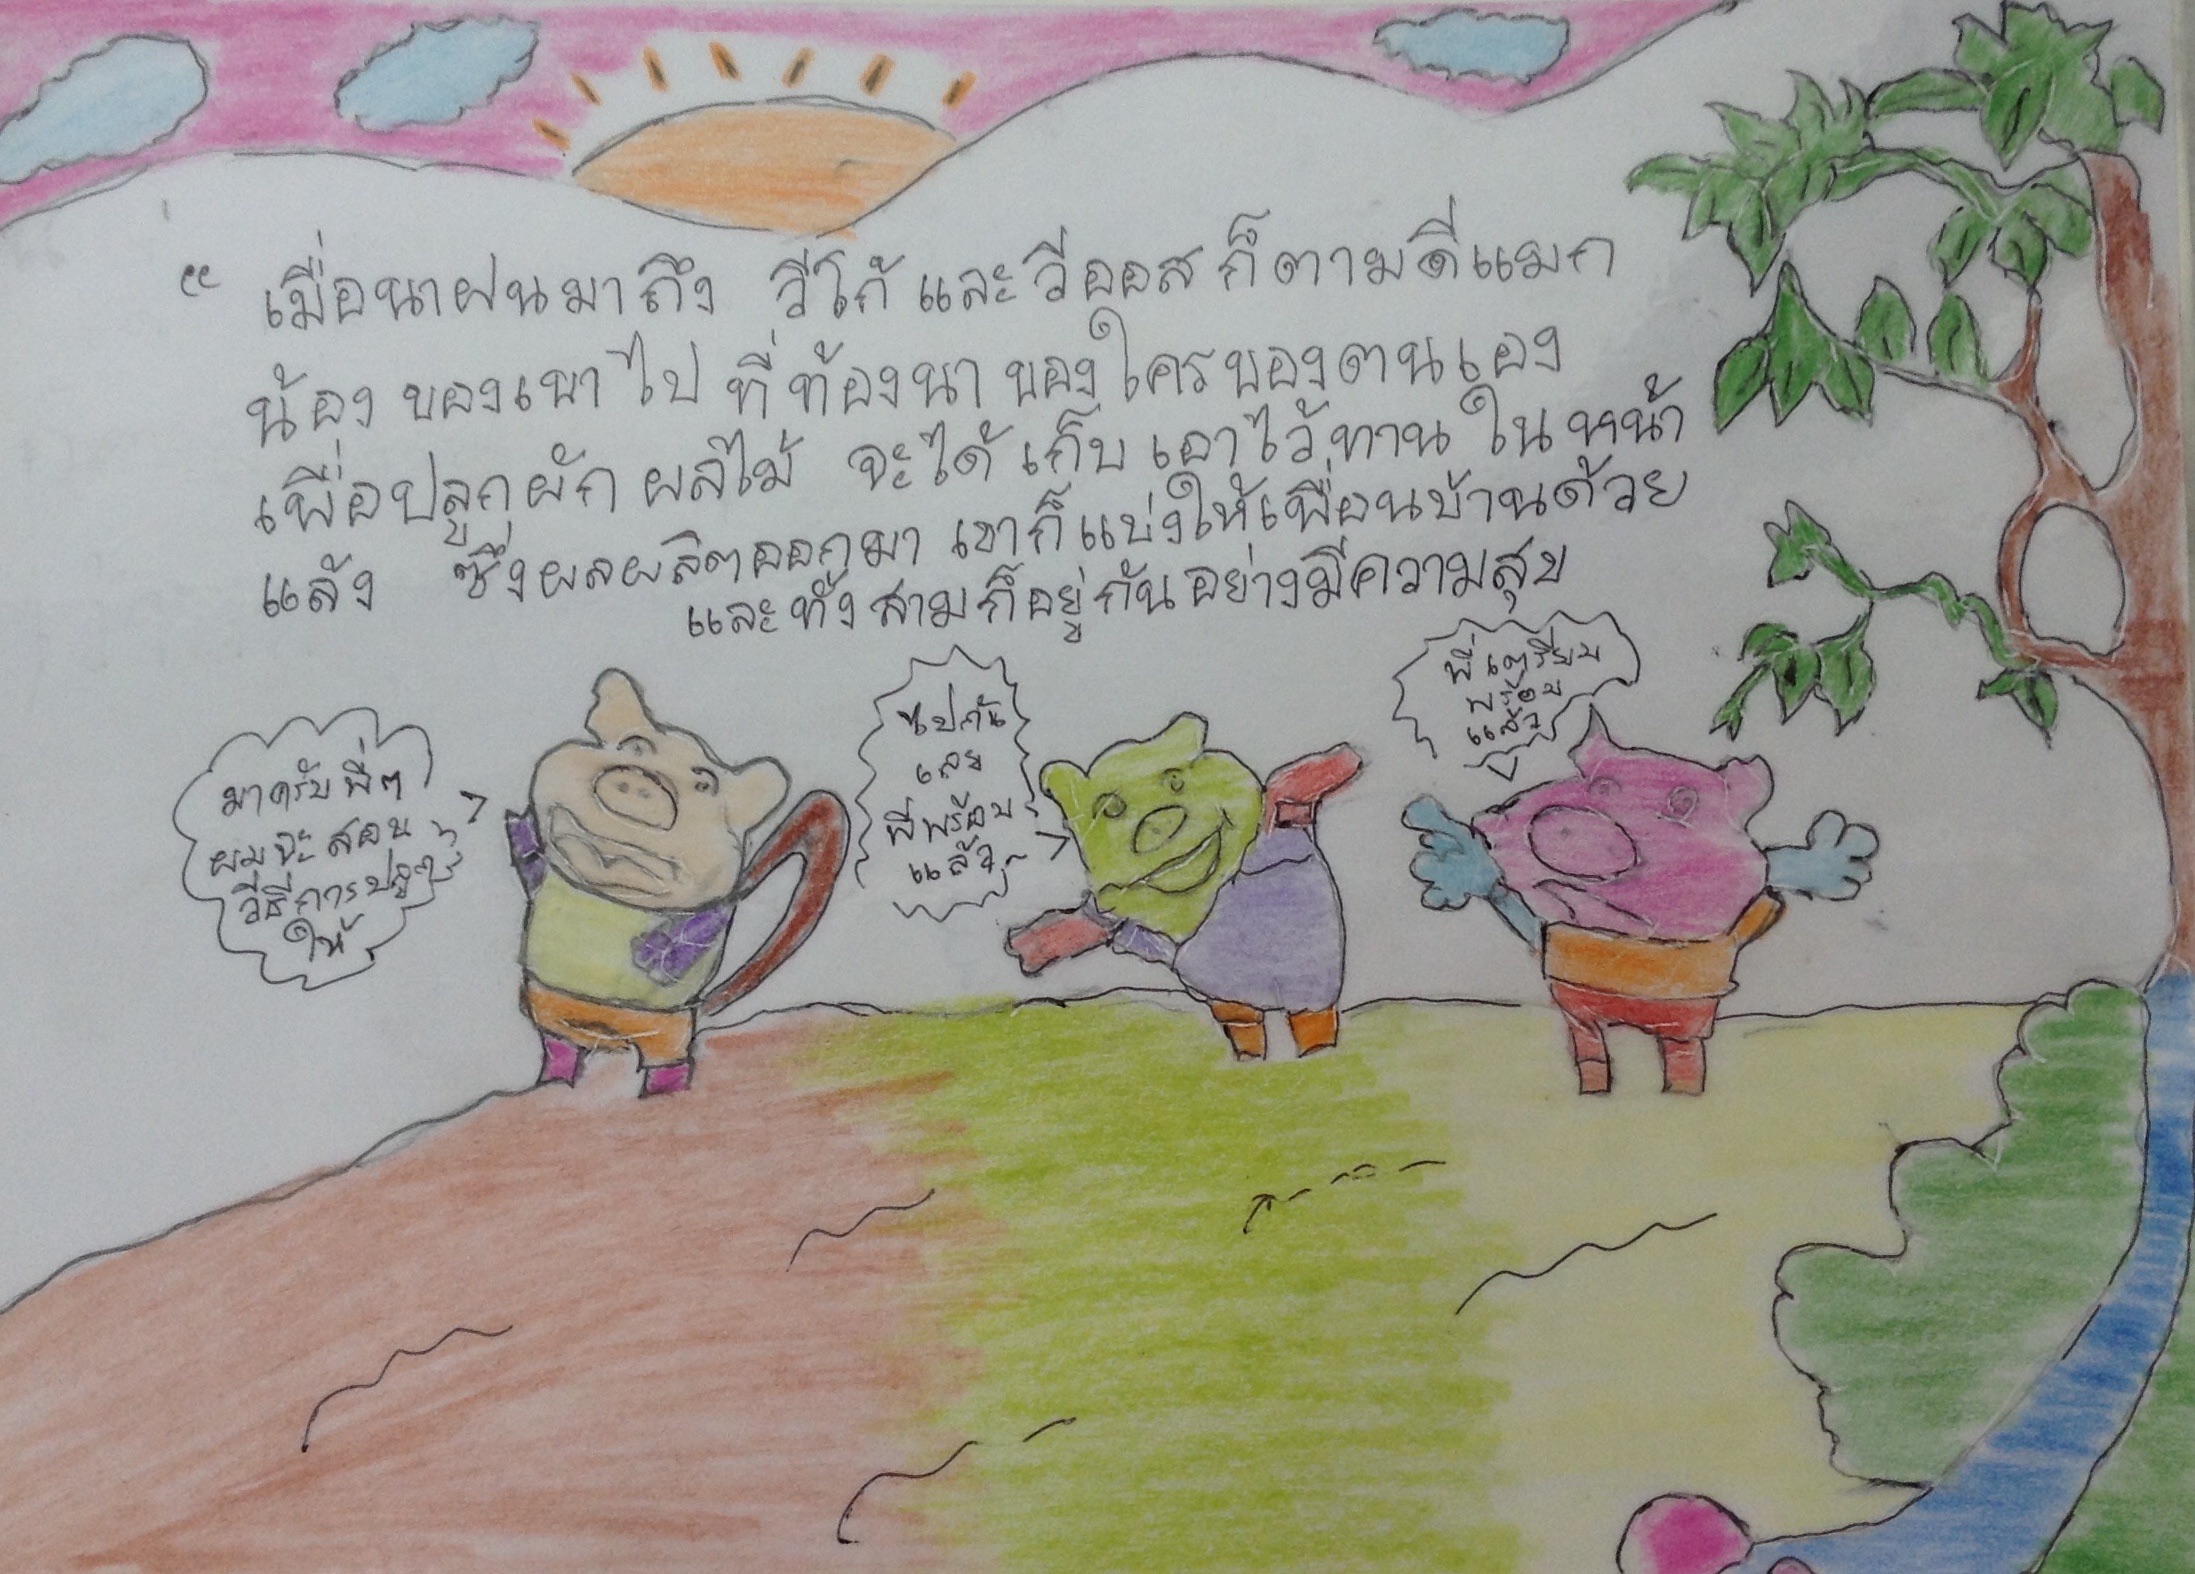 “ เมื่อนาฝนมาถึง วีโก้ และ วีออส ก็ตามดีแมก
น้อง ของเขา ไป ที่ ท้องนา ของใครของตนเอง
เพื่อปลูกผัก ผลไม้ จะได้ เก็บ เอาไว้ทาน ใน หน้า
แล้ง ซึ่งผลผลิตออกมา เขาก็แบ่งให้เพื่อนบ้านด้วย
และทั้งสามก็อยู่กันอย่างมีความสุข
มาครับ พี่ๆ
ผมจะ สอน
วิธีการปลูก
ให้
ไปกัน
เลย
พี่พร้อม
แล้ว
พี่เตรียม
พร้อม
แล้ว